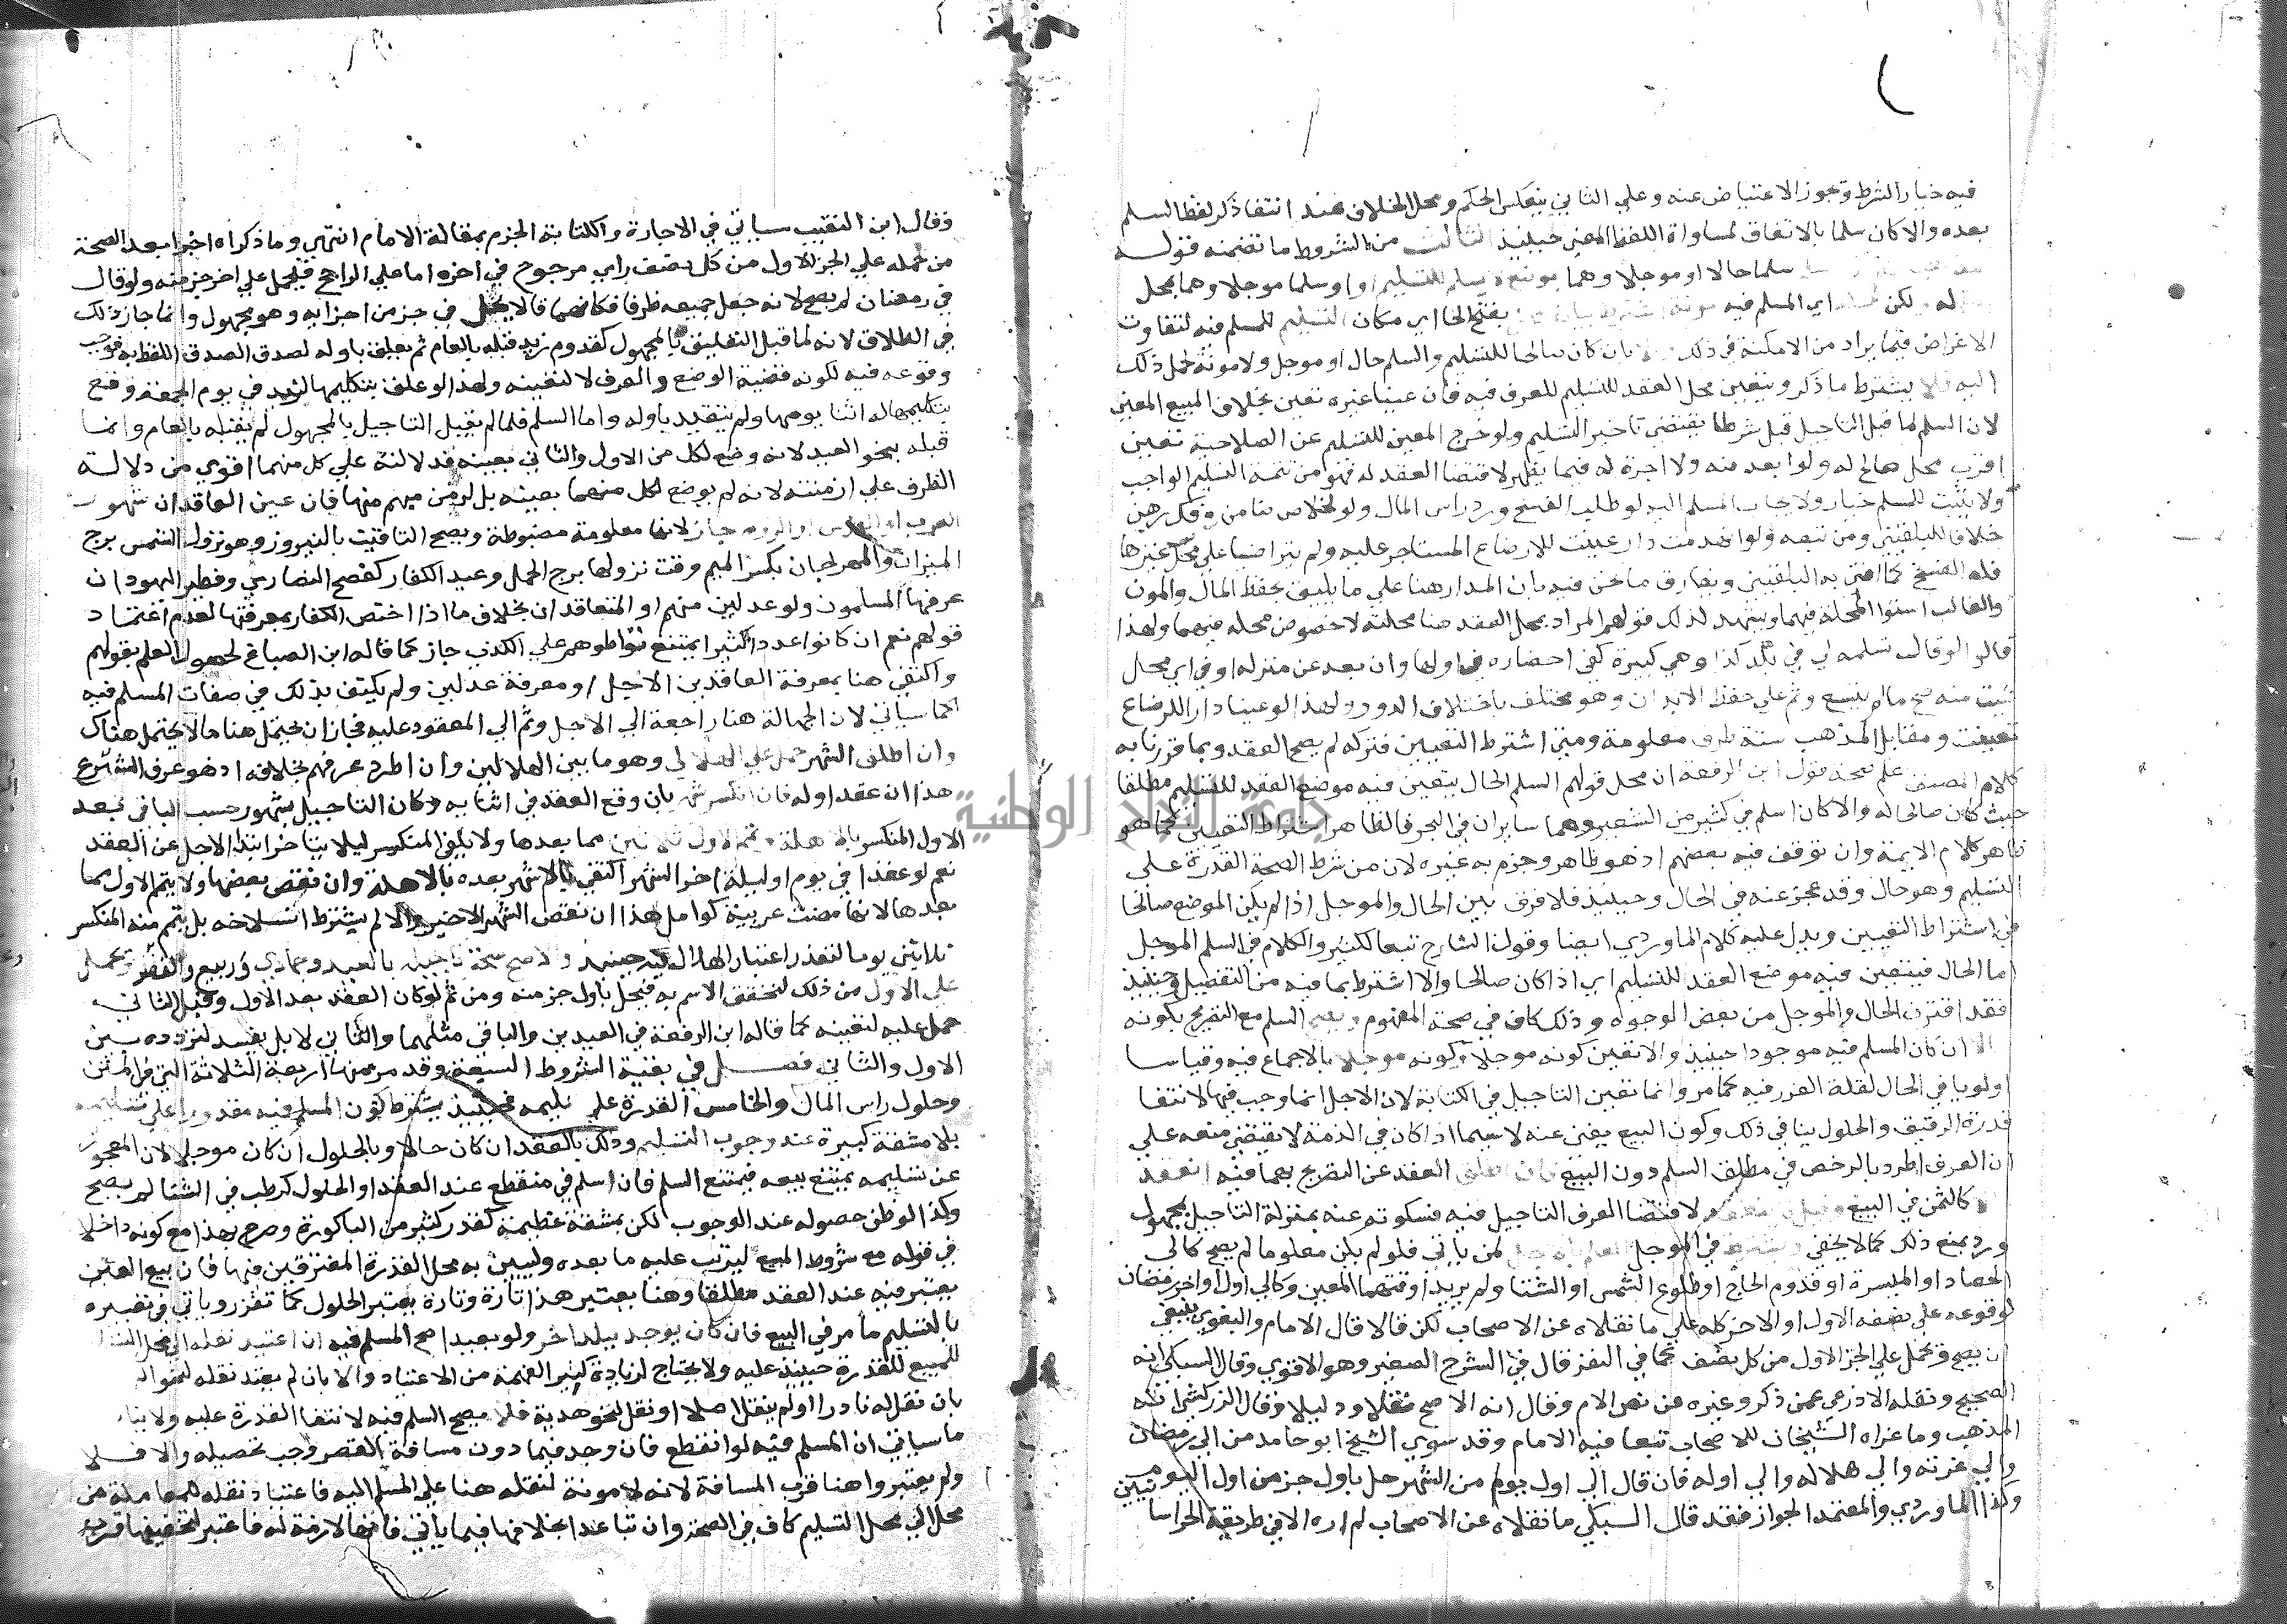 فيه خيار الشرط ويجوز الاعتياض عنه وعلي الثاني ينعكس الحكم ومحل الخلاف عند انتفا ذكر لفظ السلم
بعده والا كان سلما بالاتفاق لمساواة اللفظ المعني حينيذ الثالث من الشروط ما تضمنه قوله
سلما حالا او موجلا وهما بموضع لا يصلح للتسليم او اسلما موجلا وهما بمحل
له ولكن اي المسلم فيه مونة اشترط بيان محل بفتح الحا اي مكان التسليم للمسلم فيه لتفاوت
الاغراض فيما يراد من الامكنة في ذلك والا بان كان صالحا للتسليم والسلم حال او موجل ولا مونة لحمل ذلك
اليه فلا يشترط ما ذكر ويتعين محل العقد للتسليم للعرف فيه فان عينا غيره تعين بخلاف المبيع المعين
لان السلم لما قبل التاجيل قبل شرطا يقتضي تاخير التسليم ولو خرج المعين للتسليم عن الصلاحية تعين
اقرب محل صالح له ولو ابعد منه ولا اجرة له فيما يظهر لاقتضا العقد له فهو من تتمة التسليم الواجب
ولا يثبت للمسلم خيار ولا يجاب المسلم اليه لو طلب الفسخ ورد راس المال ولو لخلاص ضامن وفك رهن
خلافا للبلقيني ومن تبعه ولو انهدمت دار عينت للارضاع المستاجر عليه ولم يتراضيا علي محل غيرها
فله الفسخ كما افتي به البلقيني ويفارق ما نحن فيه بان المدار هنا علي ما يليق بحفظ المال والمون
والغالب استوا المحلة فيهما ويشهد لذلك قولهم المراد بمحل العقد هنا محلته لا خصوص محله منهما ولهذا
قالوا لو قال تسلمه لي في بلد كذا وهي كبيرة كفي احضاره في اولها وان بعد عن منزله او في اي محل
شيت منه صح ما لم يتسع وثم علي حفظ الابدان وهو مختلف باختلاف الدور ولهذا لو عينا دارا للرضاع
تعينت ومقابل المذهب ستة طرق معلومة ومتي اشترط التعيين فتركه لم يصح العقد وبما قررنا به
كلام المصنف علم صحة قول ابن الرفعة ان محل قولهم السلم الحال يتعين فيه موضع العقد للتسليم مطلقا
حيث كان صالحا له والا كان اسلم في كثير من الشعير وهما سايران في البحر فالظاهر اشتراط التعيين كما هو
ظاهر كلام الايمة وان توقف فيه بعضهم اذ هو ظاهر وجزم به غيره لان من شرط الصحة القدرة علي
التسليم وهو حال وقد عجز عنه في الحال وحينيذ فلا فرق بين الحال والموجل اذا لم يكن الموضع صالحا
في اشتراط التعيين ويدل عليه كلام الماوردي ايضا وقول الشارح تبعا لكثير والكلام في السلم الموجل
اما الحال فيتعين فيه موضع العقد للتسليم اي اذا كان صالحا والا اشترط بما فيه من التفصيل وحينيذ
فقد افترق الحال والموجل من بعض الوجوه وذلك كاف في صحة المفهوم ويصح السلم مع التصريح بكونه
الا ان كان المسلم فيه موجودا حينيذ والا تعين كونه موجلا وكونه موجلا بالاجماع فيه وقياسا
اولويا في الحال لقلة الغرر فيه كما مر وانما تعين التاجيل في الكتابة لان الاجل انما وجب فيها لانتفا
قدرة الرقيق والحلول ينافي ذلك وكون البيع يغني عنه لا سيما اذا كان في الذمة لا يقتضي منعه علي
ان العرف اطرد بالرخص في مطلق السلم دون البيع فان اطلق العقد عن التصريح بهما فيه انعقد
كالثمن في البيع وقيل لا ينعقد لاقتضا العرف التاجيل فيه فسكوته عنه بمنزلة التاجيل بمجهول
ورد بمنع ذلك كما لا يخفي ويشترط في الموجل العلم بالاجل لمن ياتي فلو لم يكن معلوما لم يصح كالي
الحصاد او الميسرة او قدوم الحاج او طلوع الشمس او الشتا ولم يريدا وقتهما المعين وكالي اول او اخر رمضان
لوقوعه علي نصفه الاول او الاخر كله علي ما نقلاه عن الاصحاب لكن قالا قال الامام والبغوي ينبغي
ان يصح ويحمل علي الجز الاول من كل نصف كما في النفر قال في الشرح الصغير وهو الاقوي وقال السبكي انه
الصحيح ونقله الاذرعي عمن ذكر وغيره من نص الام وقال انه الاصح نقلا ودليلا وقال الزركشي انه
المذهب وما عزاه الشيخان للاصحاب تبعا فيه الامام وقد سوي الشيخ ابو حامد من الي رمضان
والي غرته والي هلاله والي اوله فان قال الي اول يوم من الشهر حل باول جز من اول اليوم
وكذا الماوردي والمعتمد الجواز فقد قال السبكي ما نقلاه عن الاصحاب لم اره الا في طريقة الخراسا
نيين
وقال ابن النقيب سياتي في الاجارة والكتابة الجزم بمقالة الامام انتهي وما ذكراه اخيرا بعد الصحة
من حمله علي الجز الاول من كل نصف راي مرجوح في اخره اما علي الراجح فيحمل علي اخر جز منه ولو قال
في رمضان لم يصح لانه جعل جميعه ظرفا فكانهما قالا يحل في جز من اجزايه وهو مجهول وانما جاز ذلك
في الطلاق لانه لما قبل التعليق بالمجهول كقدوم زيد قبله بالعام ثم تعلق باوله لصدق اللفظ به فوجب
وقوعه فيه لكونه قضية الوضع والعرف لا لتعينه ولهذا لو علق بتكليمها لزيد في يوم الجمعة وقع
بتكليمها له اثنا يومها ولم يتقيد باوله واما السلم فلما لم يقبل التاجيل بالمجهول لم يقبله بالعام وانما
قبله بنحو العيد لانه وضع لكل من الاول والثاني بعينه فدلالته علي كل منهما اقوي من دلالة
الظرف علي ازمنته لانه لم يوضع لكل منهما بعينه بل لزمن مبهم منها فان عين العاقدان شهور
العرب او الفرس او الروم جاز لانها معلومة مضبوطة ويصح التاقيت بالنيروز وهو نزول الشمس برج
الميزان والمهرجان بكسر الميم وقت نزولها برج الحمل وعيد الكفار كفصح النصاري وفطير اليهود ان
عرفها المسلمون ولو عدلين منهم او المتعاقدان بخلاف ما اذا اختص الكفار بمعرفتها لعدم اعتماد
قولهم نعم ان كانوا عددا كثيرا يمتنع تواطوهم علي الكذب جاز كما قاله ابن الصباغ لحصول العلم بقولهم
واكتفي هنا بمعرفة العاقدين الاجل او معرفة عدلين ولم يكتف بذلك في صفات المسلم فيه
كما سياتي لان الجهالة هنا راجعة الي الاجل وثم الي المعقود عليه فجاز ان يحتمل هنا ما لا يحتمل هناك
وان اطلق الشهر حمل علي الهلالي وهو ما بين الهلالين وان اطرد عرفهم بخلافه اذ هو عرف الشرع
هذا ان عقد اوله فان انكسر شهر بان وقع العقد في اثنايه وكان التاجيل بشهور حسب الباقي بعد
الاول المنكسر بالاهلة وتمم الاول ثلاثين مما بعدها ولا يلغي المنكسر ليلا يتاخر ابتدا الاجل عن العقد
نعم لو عقدا في يوم او ليلة اخر الشهر اكتفي بالاشهر بعده بالاهلة وان نقص بعضها ولا يتم الاول مما
بعدها لانها مضت عربية كوامل هذا ان نقص الشهر الاخير والا لم يشترط انسلاخه بل يتم منه المنكسر
ثلاثين يوما لتعذر اعتبار الهلال فيه حينيذ والاصح صحة تاجيله بالعيد وجمادي وربيع والنفر ويحمل
علي الاول من ذلك لتحقق الاسم به فيحل باول جز منه ومن ثم لو كان العقد بعد الاول وقبل الثاني
حمل عليه لتعينه كما قاله ابن الرفعة في العيدين والباقي مثلهما والثاني لا بل يفسد لتردده بين
الاول والثاني فصل في بقية الشروط السبعة وقد مر منها اربعة الثلاثة التي في المتن
وحلول راس المال والخامس القدرة علي تسليمه فحينيذ يشترط كون المسلم فيه مقدورا علي تسليمه
بلا مشقة كبيرة عند وجوب التسليم وذلك بالعقد ان كان حالا وبالحلول ان كان موجلا لان المعجوز
عن تسليمه يمتنع بيعه فيمتنع السلم فان اسلم في منقطع عند العقد او الحلول كرطب في الشتا لم يصح
وكذا لو ظن حصوله عند الوجوب لكن بمشقة عظيمة كقدر كثير من الباكورة وصرح بهذا مع كونه داخلا
في قوله مع شروط المبيع ليرتب عليه ما بعده وليبين به محل القدرة المفترقين فيها فان بيع العين
يعتبر فيه عند العقد مطلقا وهنا يعتبر هذا تارة وتارة يعتبر الحلول كما تقرر وياتي في تعبيره
بالتسليم ما مر في البيع فان كان يوجد ببلد اخر ولو بعيدا صح المسلم فيه ان اعتيد نقله الي محل التسليم
للبيع للقدرة حينيذ عليه ولا يحتاج لزيادة كثير لفهمه من الاعتياد والا بان لم يعتد نقله لنحو
بان نقل له نادرا او لم ينقل اصلا او نقل لنحو هدية فلا يصح السلم فيه لانتفا القدرة عليه ولا ينافي
ما سياتي ان المسلم فيه لو انقطع فان وجد فيما دون مسافة القصر وجب تحصيله والا فلا
ولم يعتبروا هنا قرب المسافة لانه لا مونة لنقله هنا علي المسلم اليه فاعتياد نقله للمعاملة من
محل الي محل التسليم كاف في الصحة وان تباعدا بخلافها فيما ياتي فانها لازمة له فاعتبر لتخفيفها قرب
جامعة النجاح الوطنية